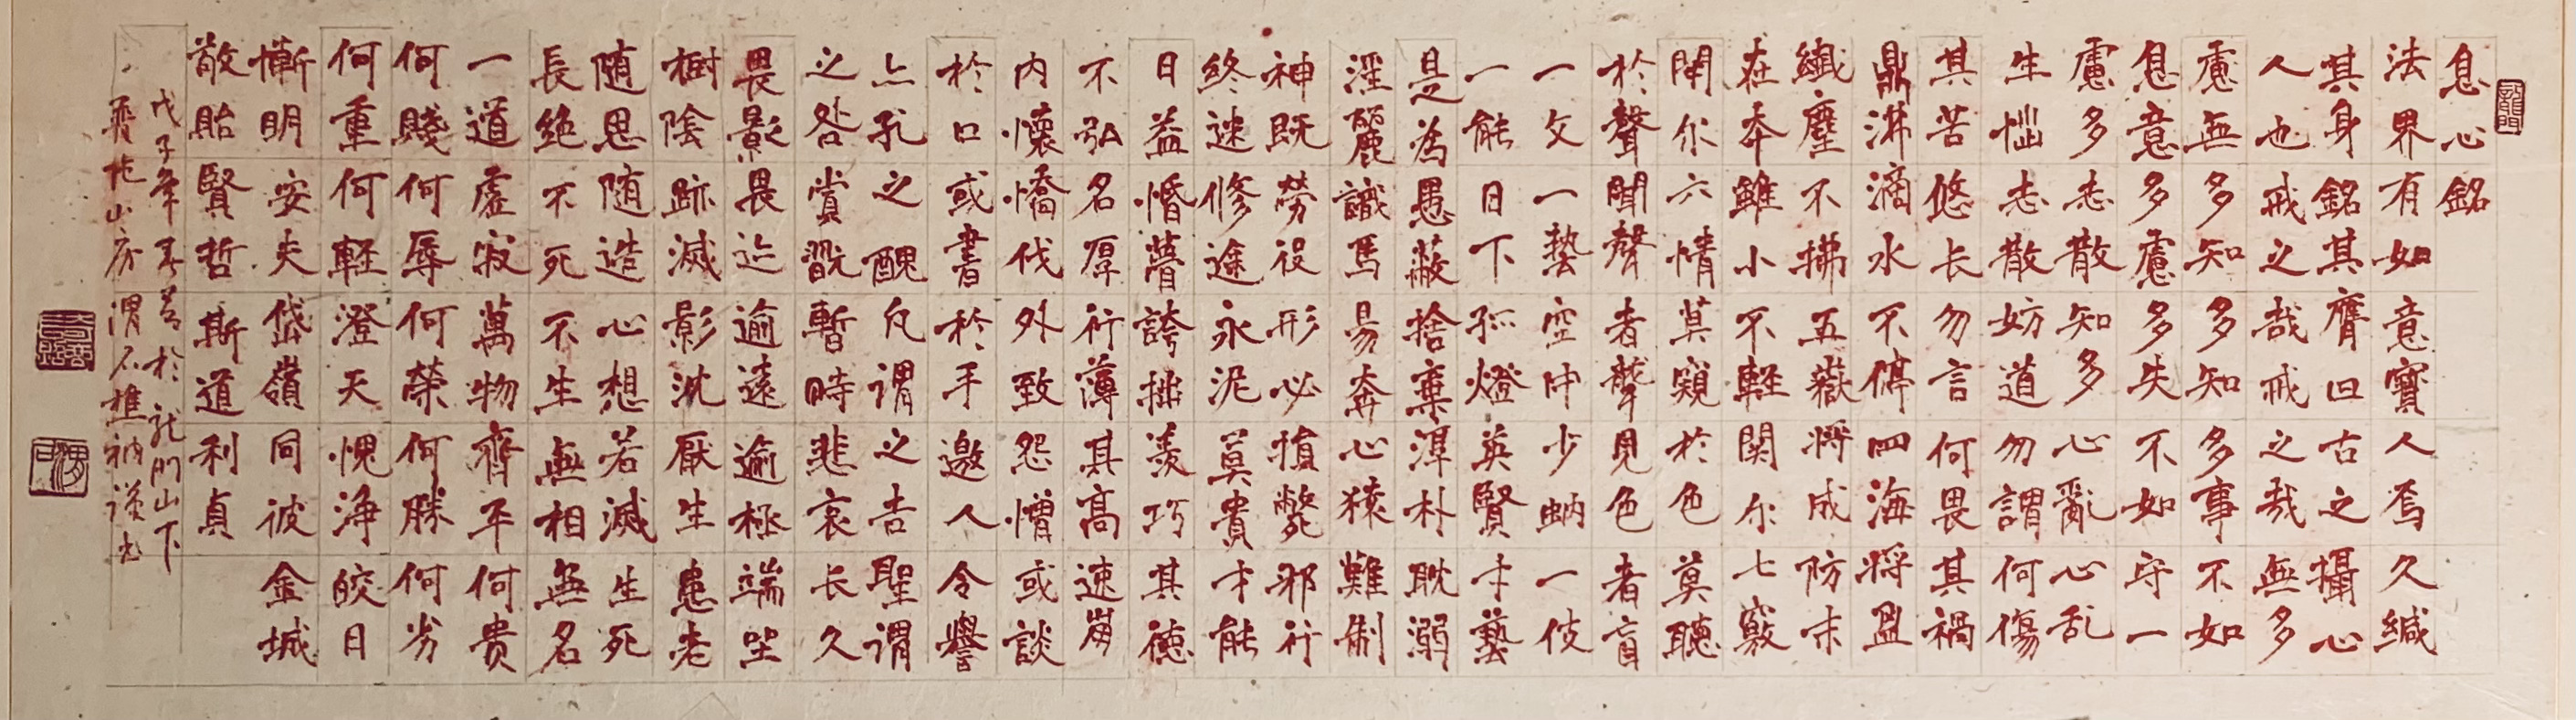 息心銘
法界有如意寶人焉久緘
其身銘其膺曰古之攝心
人也戒之哉戒之哉無多
慮無多知多知多事不如
息意多慮多失不如守一
慮多志散知多心亂心乱
生惱志散妨道勿謂何傷
其苦悠长勿言何畏其禍
鼎沸滴水不停四海将盈
纖塵不拂五嶽将成防末
在本雖小不軽関尔七竅
閉尔六情莫窺於色莫聽
於聲聞聲者聾見色者盲
一文一藝空中少蚋一伎
一能日下孤燈英賢才藝
是為愚蔽捨棄淳朴耽溺
淫麗識馬易奔心猿難制
神既勞役形必損斃邪行
終迷修途永泥莫貴才能
日益惛瞢誇拙羡巧其德
不弘名厚行薄其高速崩
内懷憍伐外致怨憎或談
於口或書於手邀人令譽
亦孔之醜凡謂之吉聖謂
之咎賞翫暫時悲哀长久
畏影畏迹逾遠逾極端坐
樹陰跡滅影沈厭生患老
随思随造心想若滅生死
長绝不死不生無相無名
一道虚寂萬物齊平何贵
何賤何辱何榮何勝何劣
何重何軽澄天愧淨皎日
慚明安夫岱嶺同彼金城
敬貽賢哲斯道利貞
戊子年春書於龙門山下
山房渭石樵衲